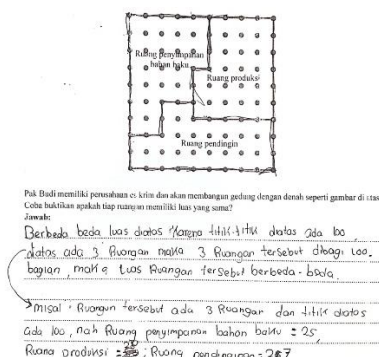 Ruang penyimpanan
bahan baku
Ruang produksi
Ruang pendingin
Pak Budi memiliki perusahaan es krim dan akan membangun gedung dengan denah seperti gambar di atas
Coba buktikan apakah tiap ruangan memiliki luas yang sama?
Jawab:
Berbeda beda luas diatas karena titik-titik diatas ada 100
diatas ada 3 Ruangan maka 3 Ruangan tersebut dibagi 100.
bagian, maka Luas Ruangan tersebut berbeda-beda.
misal. Ruangan tersebut ada 3 Ruangan dan titik diatas
ada 100, nah Ruang penyimpanan bahan baku = 25,
Ruang produksi = : Ruang pendinginan =